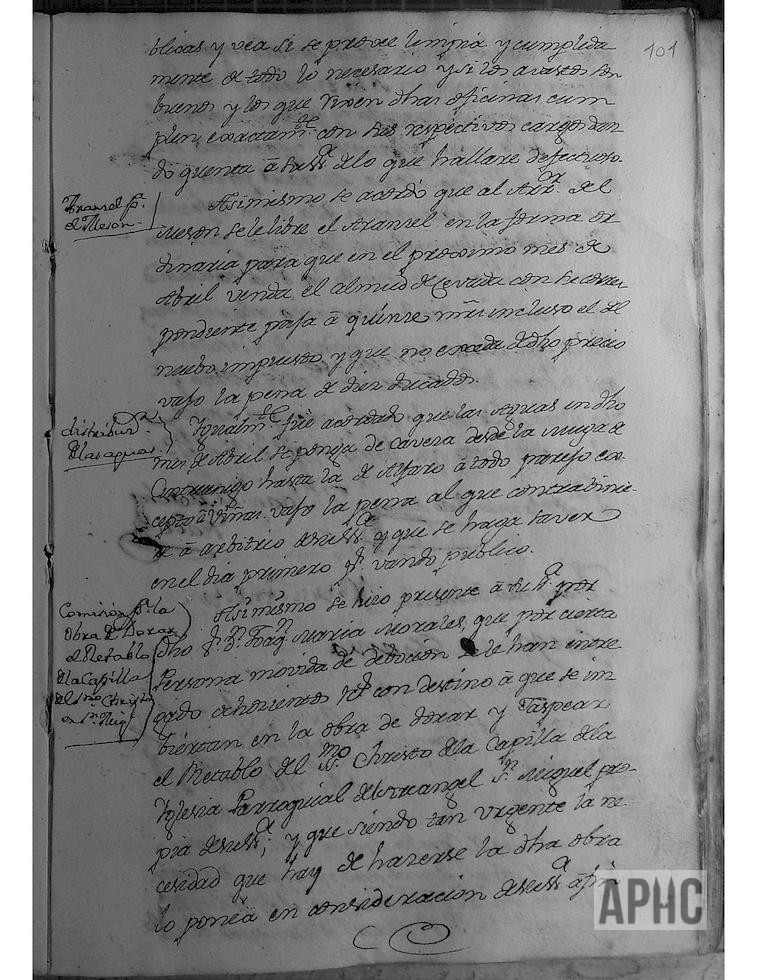 101
blicas y vea si se provee limpia y cumplida
mente de todo lo necesario y si los avastos son
buenos y los que viven dhas oficinas cum
plen exactamte con sus respectivos cargos dan
do quenta a su Sa de lo que hallare defectuoso.
Aranzel pa
el Meson
Asimismo se acordó que al Arrdr del
Meson se le libre el Aranzel en la forma or
dinaria para que en el proximo mes de
Abril venda el almud de Cevada con su corres
pondiente paja a quinze mrs incluso el de
nuebo impuesto y que no exceda de dho precio
vajo la pena de diez ducados.
distribuon
de las aguas
Igualmte fue acordado que las Aguas en dho
mes de Abril se ponga de cavera desde la Muga de
Cintruenigo hasta la de Alfaro a todo parejo ex
cepto a Viñas vajo la pena al que contravinie
re a arbitrio de su Sa y que se haga saver
en el dia primero pr vando publico.
Comision pa la
obra de Dorar
el Retablo
de la Capilla
del Smo Christo
en Sn Migl
Asimismo se hizo presente a su Sa por
dho Sr Dn Joaqn Maria Morales, que por cierta
Persona movida de devocion se le han entre
gado ochocientos rs con destino a que se im
biertan en la obra de dorar y Jaspear
el Retablo del SSmo Christo de la Capilla de la
Iglesia Parroquial del Arcangel Sn Miguel pro-
pia de su Sa; y que siendo tan urgente la ne
cesidad que hay de hazerse la dha obra
lo ponia en consideracion de su Sa a fin
APHC